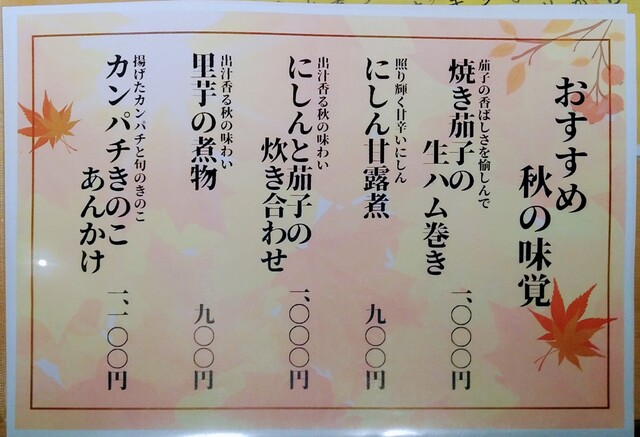 おすすめ
秋の味覚
茄子の香ばしさを愉しんで
焼き茄子の
生ハム巻き
一、〇〇〇円
照り輝く甘辛いにしん
にしん甘露煮
九〇〇円
出汁香る秋の味わい
にしんと茄子の
炊き合わせ
一、〇〇〇円
出汁香る秋の味わい
里芋の煮物
九〇〇円
揚げたカンパチと旬のきのこ
カンパチきのこ
あんかけ
一、一〇〇円